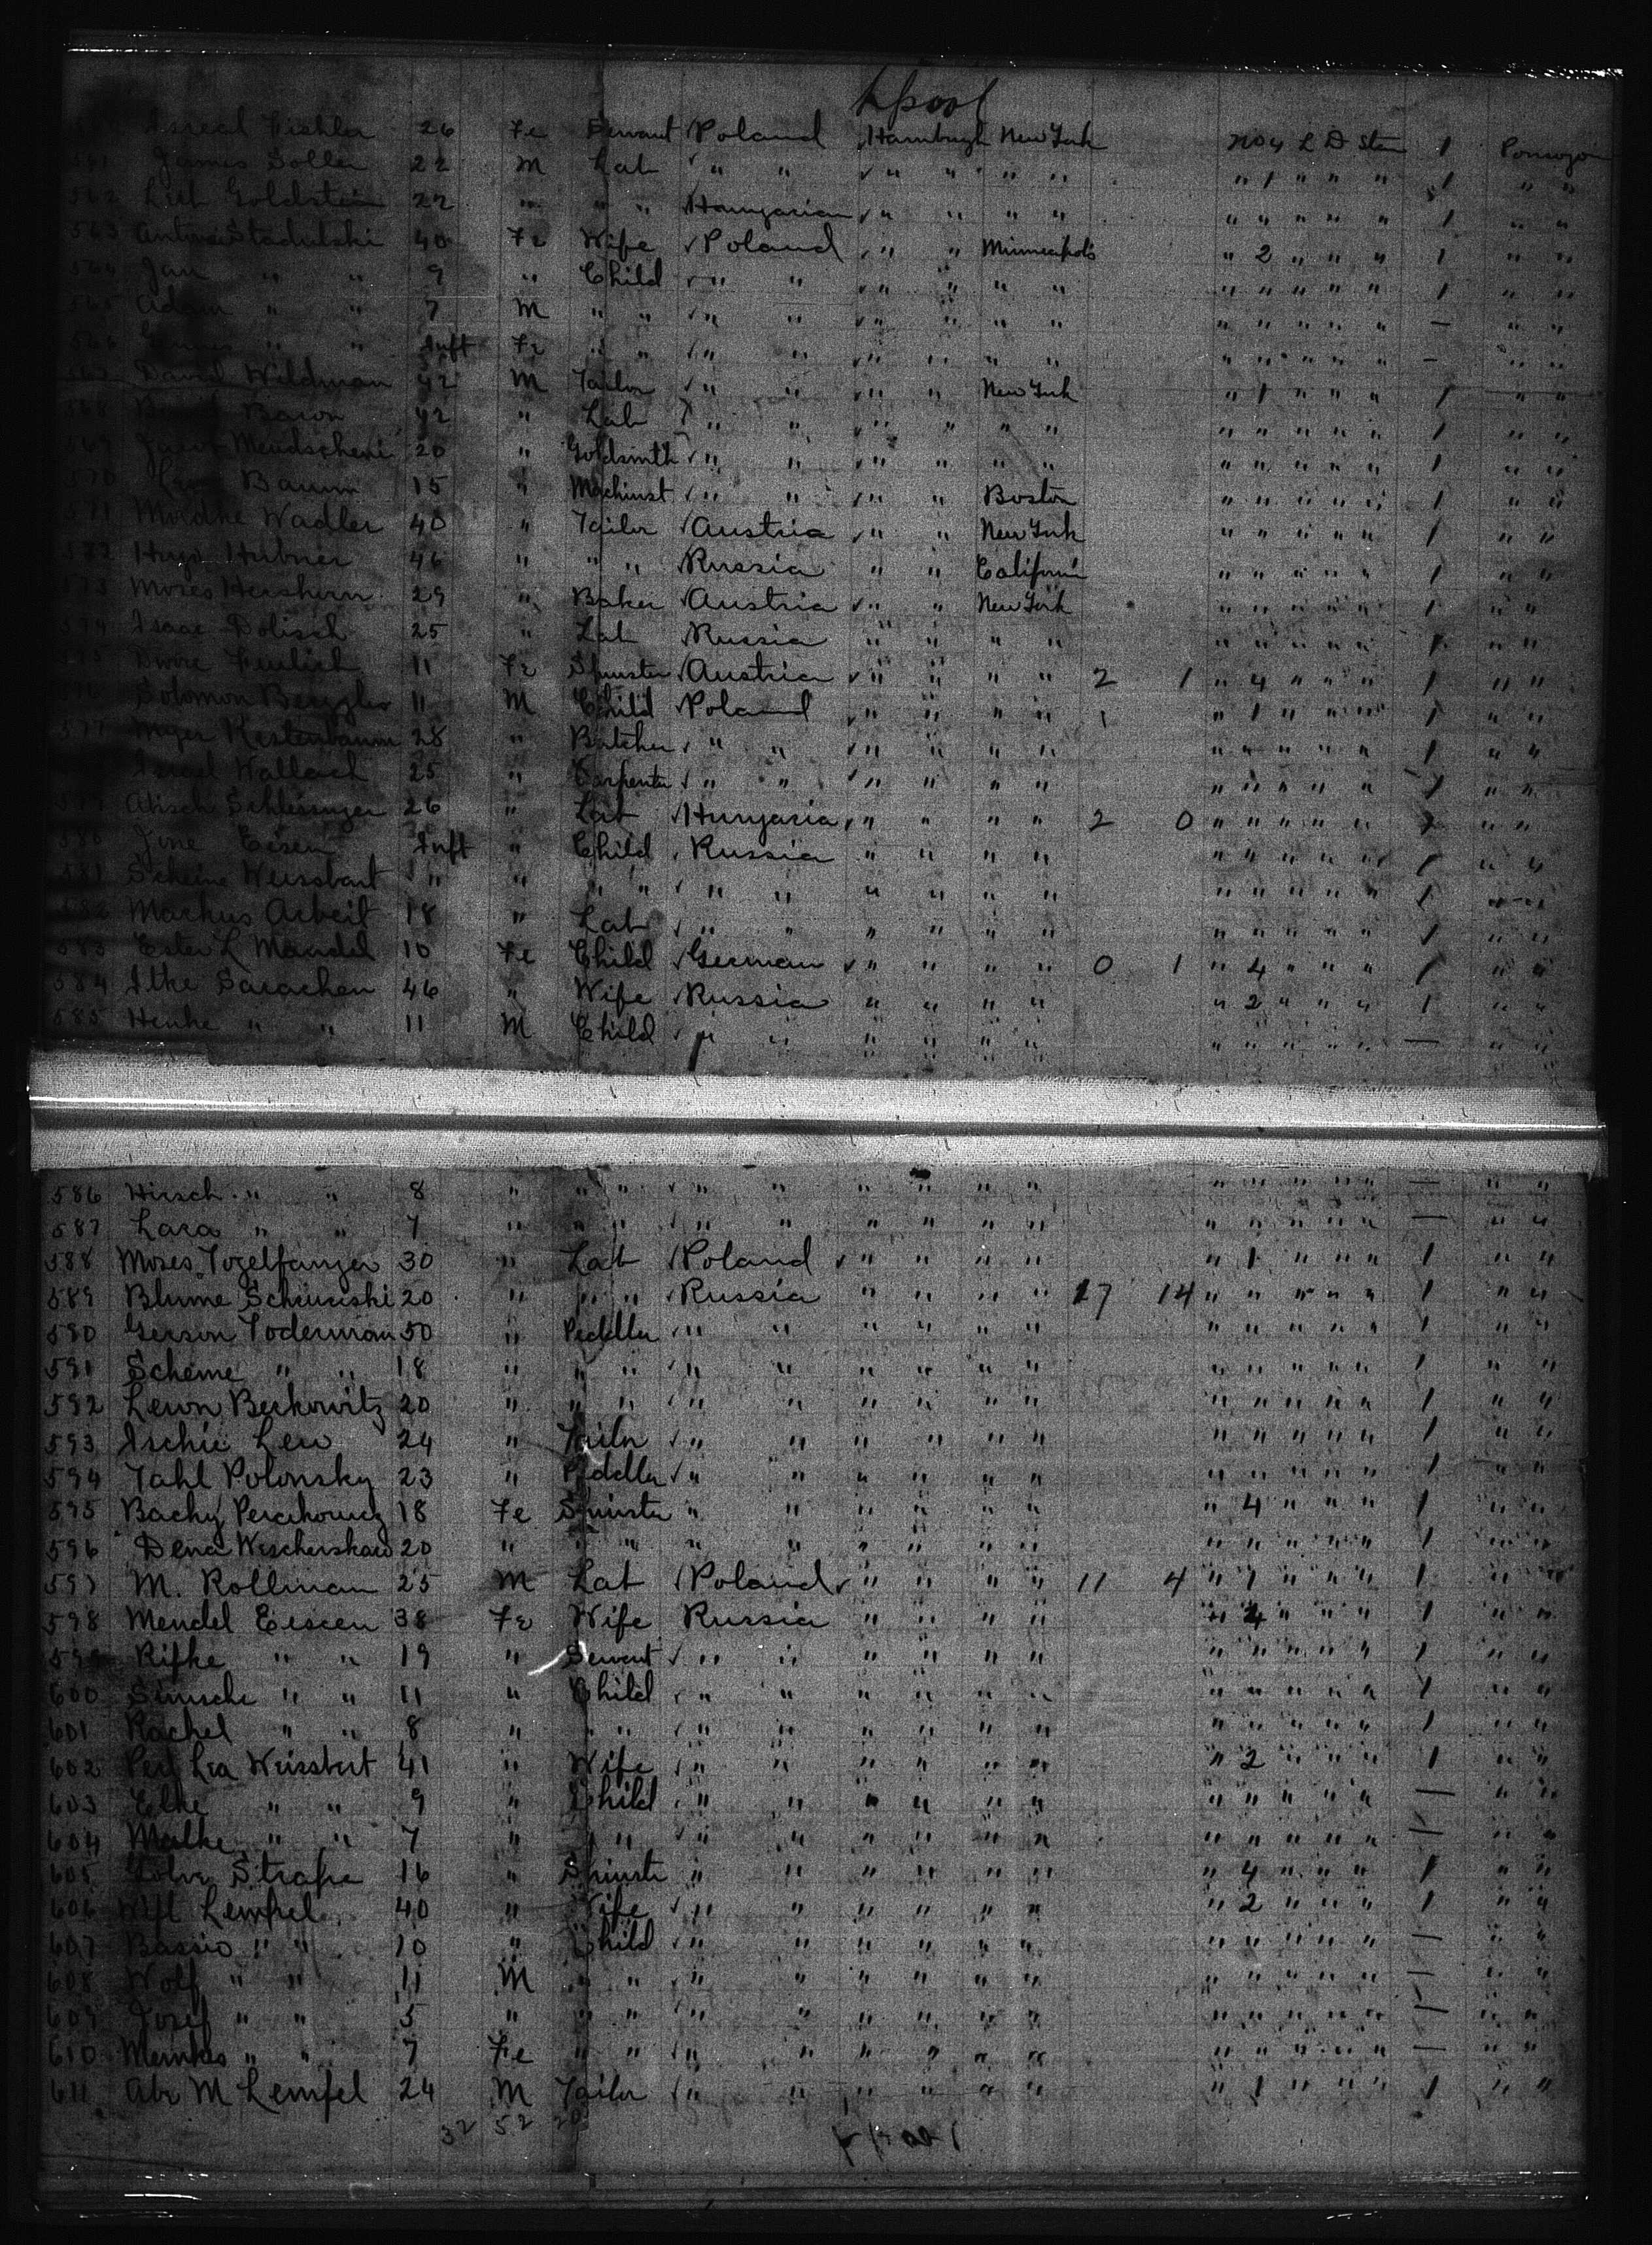 Lpool
Isreal Fishler 26 Fe Servant Poland Hamburgh New York No 4 L D Ste 1
561 James Soller 22 M Lab " " " " " " " 1 " " " 1 " "
562 Goldstein 22 " " " Hungarian " " " " " " " " " 1 " "
563 Stadulski 40 Fe Wife Poland " " Minneapolis " 2 " " " 1 " "
564 Jan " " 9 " Child " " " " " " " " " " " 1 " "
565 Adam " " 7 M " " " " " " " " " " " " " — " "
566 " " Inft Fe " " " " " " " " " " " " " — " "
567 David Wildman 42 M Tailor " " " " New York " 1 " " " 1 " "
568 Baron 42 " Lab " " " " " " " " " " " 1 " "
569 Jacob 20 " Goldsmith " " " " " " " " " " " 1 " "
570 Baum 15 " Machinst " " " " Boston " " " " " 1 " "
571 Mordke Wadler 40 " Tailor Austria " " New York " " " " " 1 " "
572 Hugo Hubner 46 " " " Russia " " Californi " " " " " 1 " "
573 Moses 29 " Baker Austria " " New York " " " " " 1 " "
574 Isaac Dolisch 25 " Lab Russia " " " " " " " " " 1 " "
575 11 Fe Spinster Austria " " " " 2 1 " 4 " " " 1 " "
576 Solomon 11 M Child Poland " " " " 1 " 1 " " " 1 " "
577 Meyer Kestenbaum 28 " Butcher " " " " " " " " " " " 1 " "
Israel Wallach 25 " Carpenter " " " " " " " " " " " 1 " "
579 Schlessinger 26 " Lab Hungaria " " " " 2 0 " " " " " 1 " "
580 Eisen Inft " Child Russia " " " " " " " " " 1 " "
581 Scheine Weissbart " " " " " " " " " " " " " " " 1 " "
582 Markus Arbeit 18 " Lab " " " " " " " " " " " 1 " "
583 Ester L Mandel 10 Fe Child German " " " " 0 1 " 4 " " " 1 " "
584 Itke Sarachen 46 " Wife Russia " " " " " 2 " " " 1 " "
585 Henke " " 11 M Child " " " " " " " " " " " — " "
586 Hirsch " " 8 " " " " " " " " " " " " " " — " "
587 Lara " " 7 " " " " " " " " " " " " " " — " "
588 Moses Vogelfanger 30 " Lab Poland " " " " " 1 " " " 1 " "
589 Blume 20 " " " Russia " " " " 17 14 " " " " " 1 " "
590 Gerson Toderman 50 " Peddler " " " " " " " " " " " 1 " "
591 Scheme " " 18 " " " " " " " " " " " " " " 1 " "
592 Lewn Berkowitz 20 " " " " " " " " " " " " " " 1 " "
593 Ischie Lew 24 " Tailor " " " " " " " " " " " 1 " "
594 Tahl Polonsky 23 " Peddler " " " " " " " " " " " 1 " "
595 Bachy 18 Fe Spinster " " " " " " " 4 " " " 1 " "
596 Dena 20 " " " " " " " " " " " " " " 1 " "
597 M. Rollman 25 M Lab Poland " " " " 11 4 " 1 " " " 1 " "
598 Mendel Eiscen 38 Fe Wife Russia " " " " " 4 " " " 1 " "
599 Rifke " " 19 " Servant " " " " " " " " " " " 1 " "
600 Simsche " " 11 " Child " " " " " " " " " " " 1 " "
601 Rachel " " 8 " " " " " " " " " " " " " " 1 " "
602 Perl Lea Weissbert 41 " Wife " " " " " " " 2 " " " 1 " "
603 Elke " " 9 " Child " " " " " " " " " " " — " "
604 Malke " " 7 " " " " " " " " " " " " " " — " "
605 16 " Spinste " " " " " " " 4 " " " 1 " "
606 Lempel 40 " Wife " " " " " " " 2 " " " 1 " "
607 Bassie " " 10 " Child " " " " " " " " " " " — " "
608 Wolf " " 11 M " " " " " " " " " " " " " — " "
609 Josef " " 5 " " " " " " " " " " " " " " — " "
610 " " 7 Fe " " " " " " " " " " " " " — " "
611 Abr M Lempel 24 M Tailor " " " " " " " 1 " " " 1 " "
32 52 20